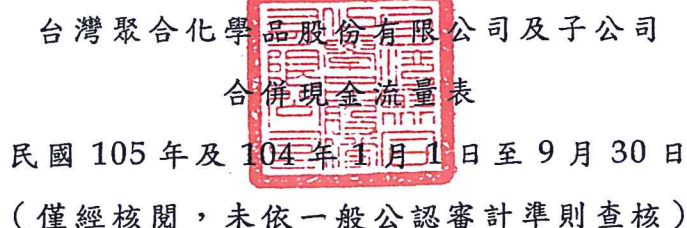 台灣聚合化學品股份有限公司及子公司
合併現金流量表
民國 105 年及 104 年 1 月 1 日至 9 月 30 日
（僅經核閱，未依一般公認審計準則查核）